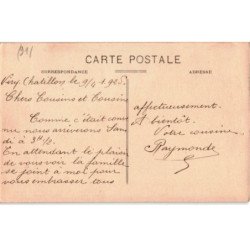 CARTE POSTALE
CORRESPONDANCE
ADRESSE
Viry Chatillon le 9/4 1925
Chers Cousins et Cousins
Comme c'était conve
nu nous arriverons Same
di à 3h
En attendant le plaisir
de vous voir la famille
se joint a moi pour
vous embrasser tous
affectueusement.
A bientôt.
Votre cousine
Raymonde